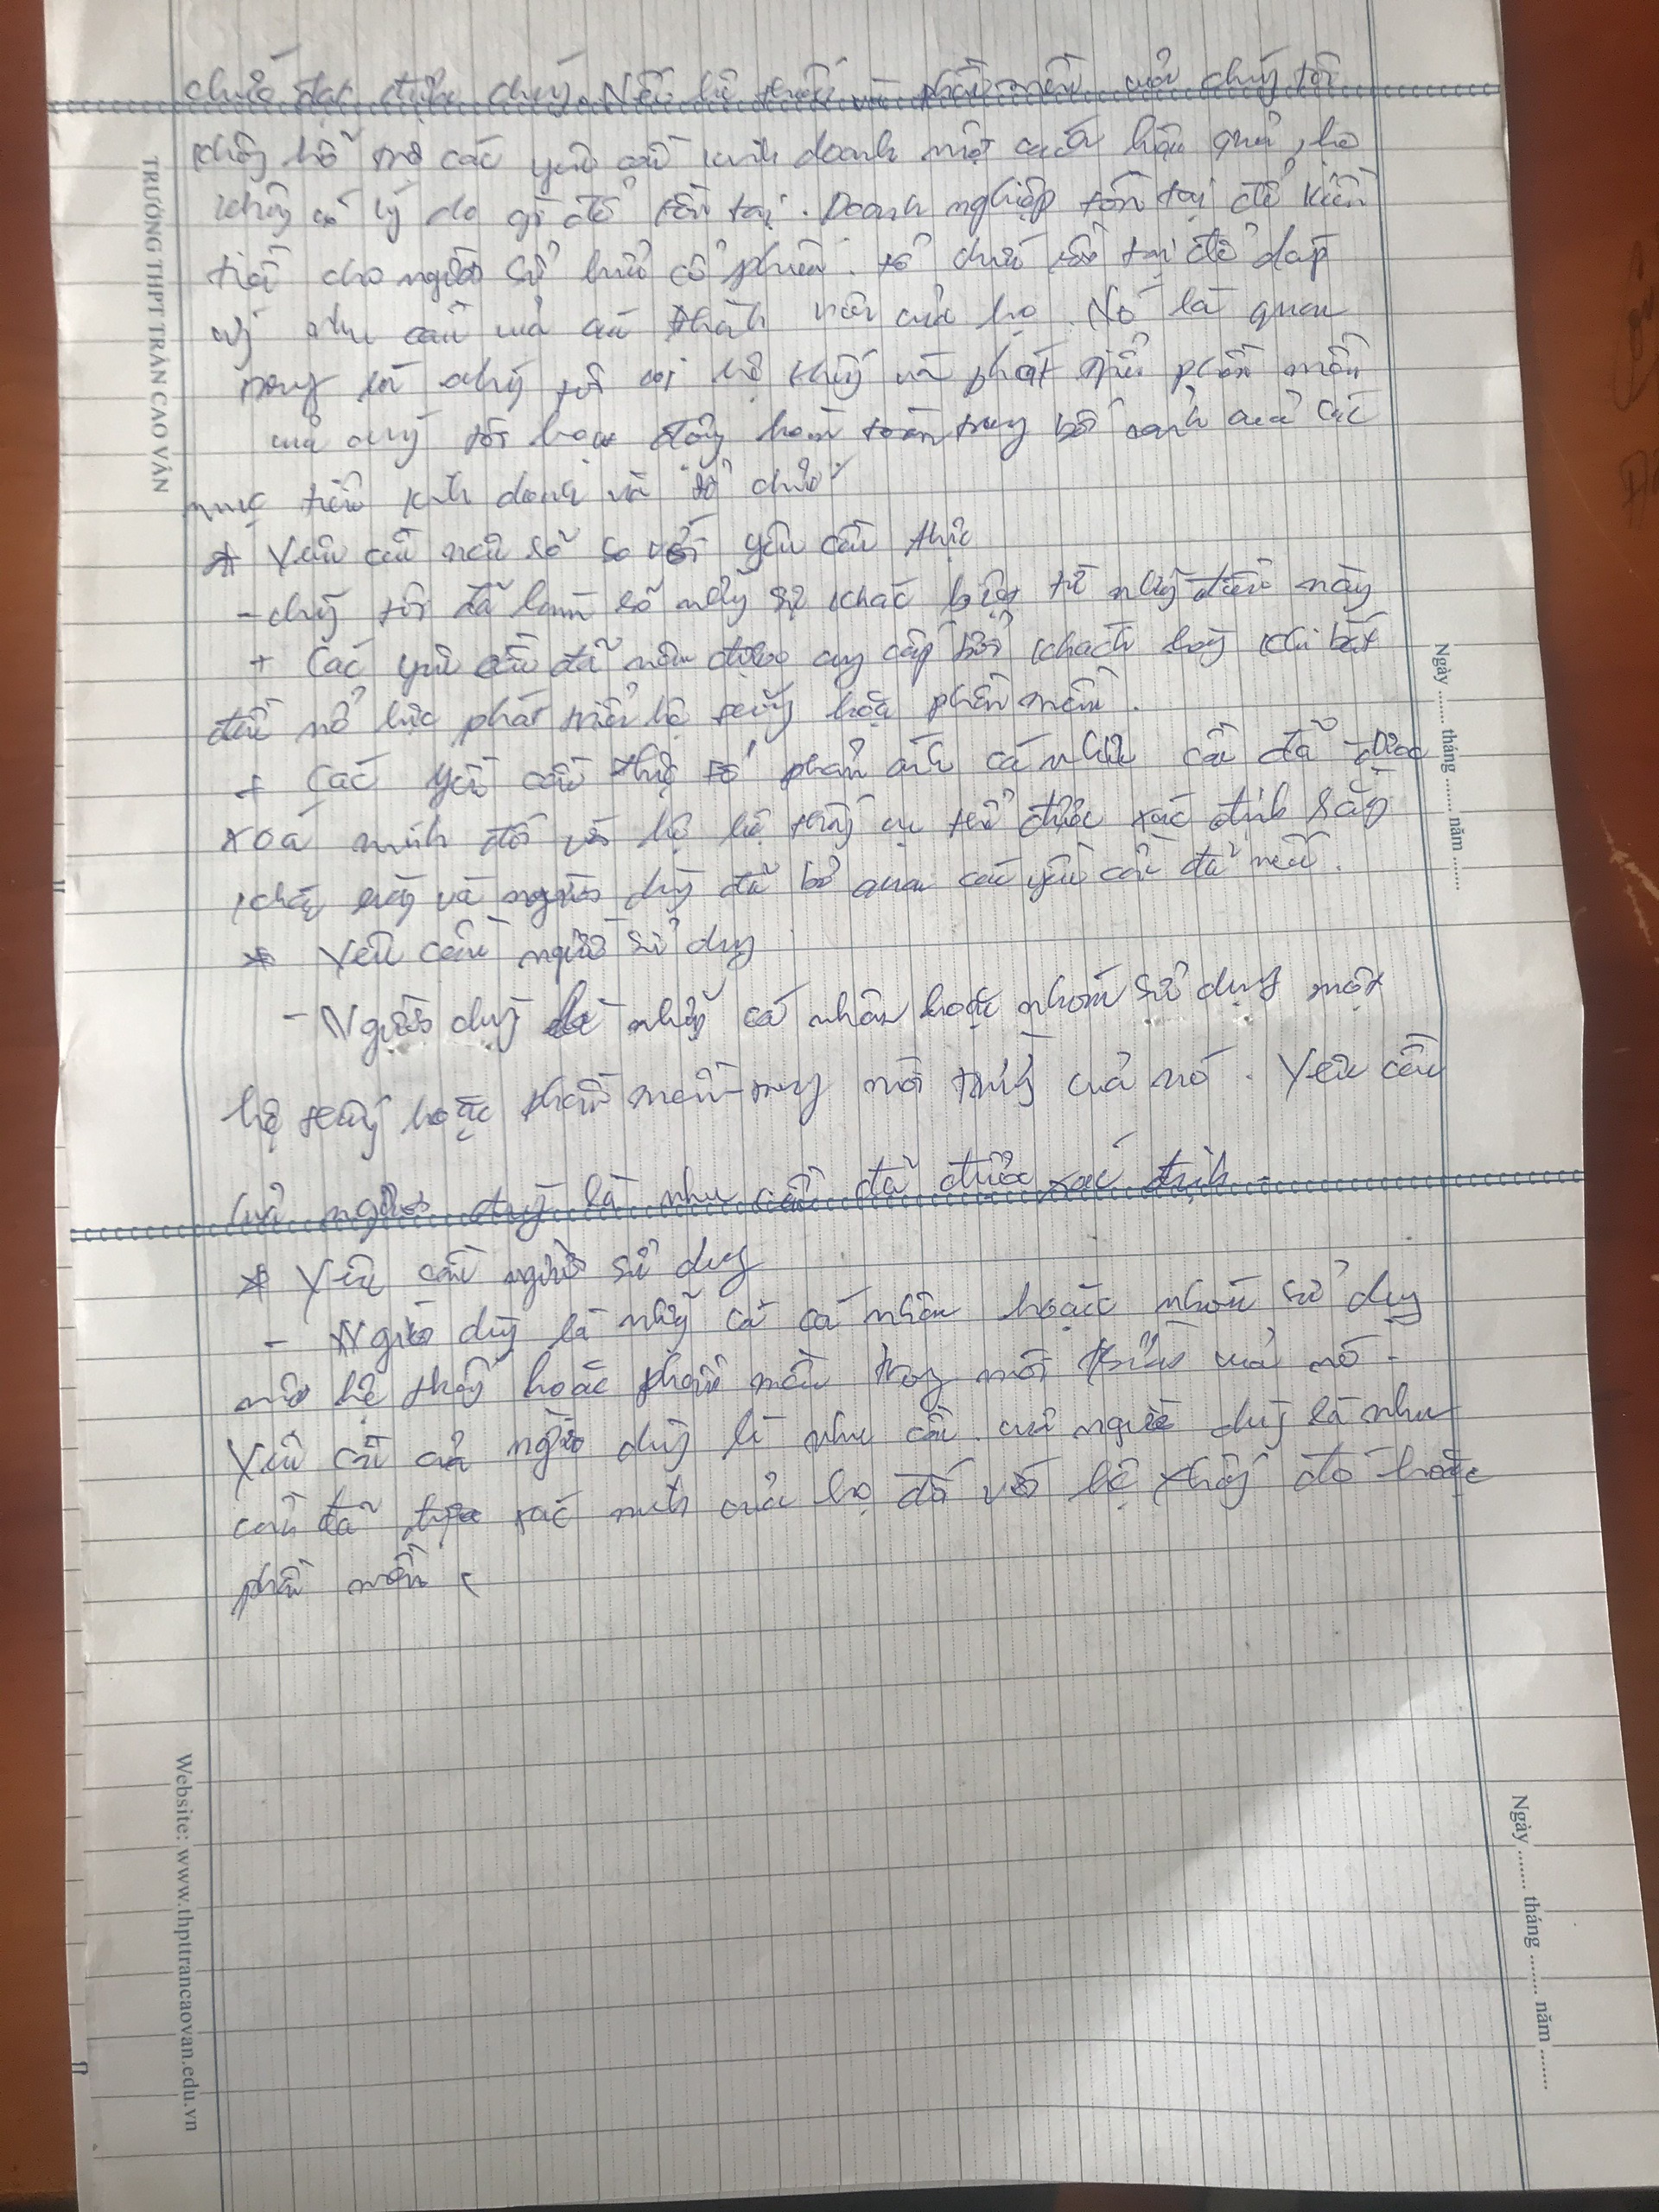 chức đạt được chúng. Nếu hệ thống và phần mềm của chúng tôi
không hỗ trợ các yêu cầu kinh doanh một cách hậu quả, họ
không có lý do gì để tồn tại. Doanh nghiệp tồn tại để kiếm
tiền cho người sở hữu cổ phiếu. tổ chức tồn tại để đáp
ứng nhu cầu của các thành viên của họ. Nó là quan
trọng là chúng tôi coi hệ thống và phát triển phần mềm
của chúng tôi hoạt động hoàn toàn trong bối cảnh của các
mục tiêu kinh doanh và tổ chức
* Yêu cầu nêu số so với yêu cầu thực
- chúng tôi đã làm rõ mấy sự khác biệt từ những điều này
+ Các yêu cầu đã nêu được cung cấp bởi khách hàng khi bắt
đầu nổ lực phát triển hệ thống hoặc phần mềm.
+ Các yêu cầu thực tế phản ánh các nhu cầu đã được
xoá minh đối với hệ thống cụ thể được xác định rằng
khách hàng và người dùng đã bỏ qua các yêu cầu đã nêu.
* Yêu cầu người sử dụng
- Người dùng là những cá nhân hoặc nhóm sử dụng một
hệ thống hoặc phần mềm trong môi trường của nó. Yêu cầu
của người dùng là nhu cầu đã được xác định.
* Yêu cầu người sử dụng
- Người dùng là những cá cá nhân hoặc nhóm sử dụng
một hệ thống hoặc phần mềm trong môi trường của nó.
Yêu cầu của người dùng là nhu cầu. của người dùng là nhu
cầu đã được xác minh của họ đối với hệ thống đó hoặc
phần mềm.
TRƯỜNG THPT TRẦN CAO VÂN
Ngày ....... tháng ....... năm .......
Website: www.thpttrancaovan.edu.vn
Ngày ....... tháng ....... năm .......